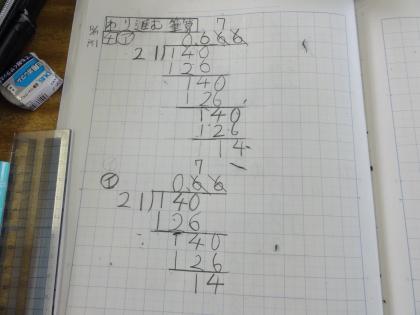 わり進む筆算
7
4 ア 0.666
21)140
126
140
126
140
126
14
7
イ 0.66
21)140
126
140
126
14